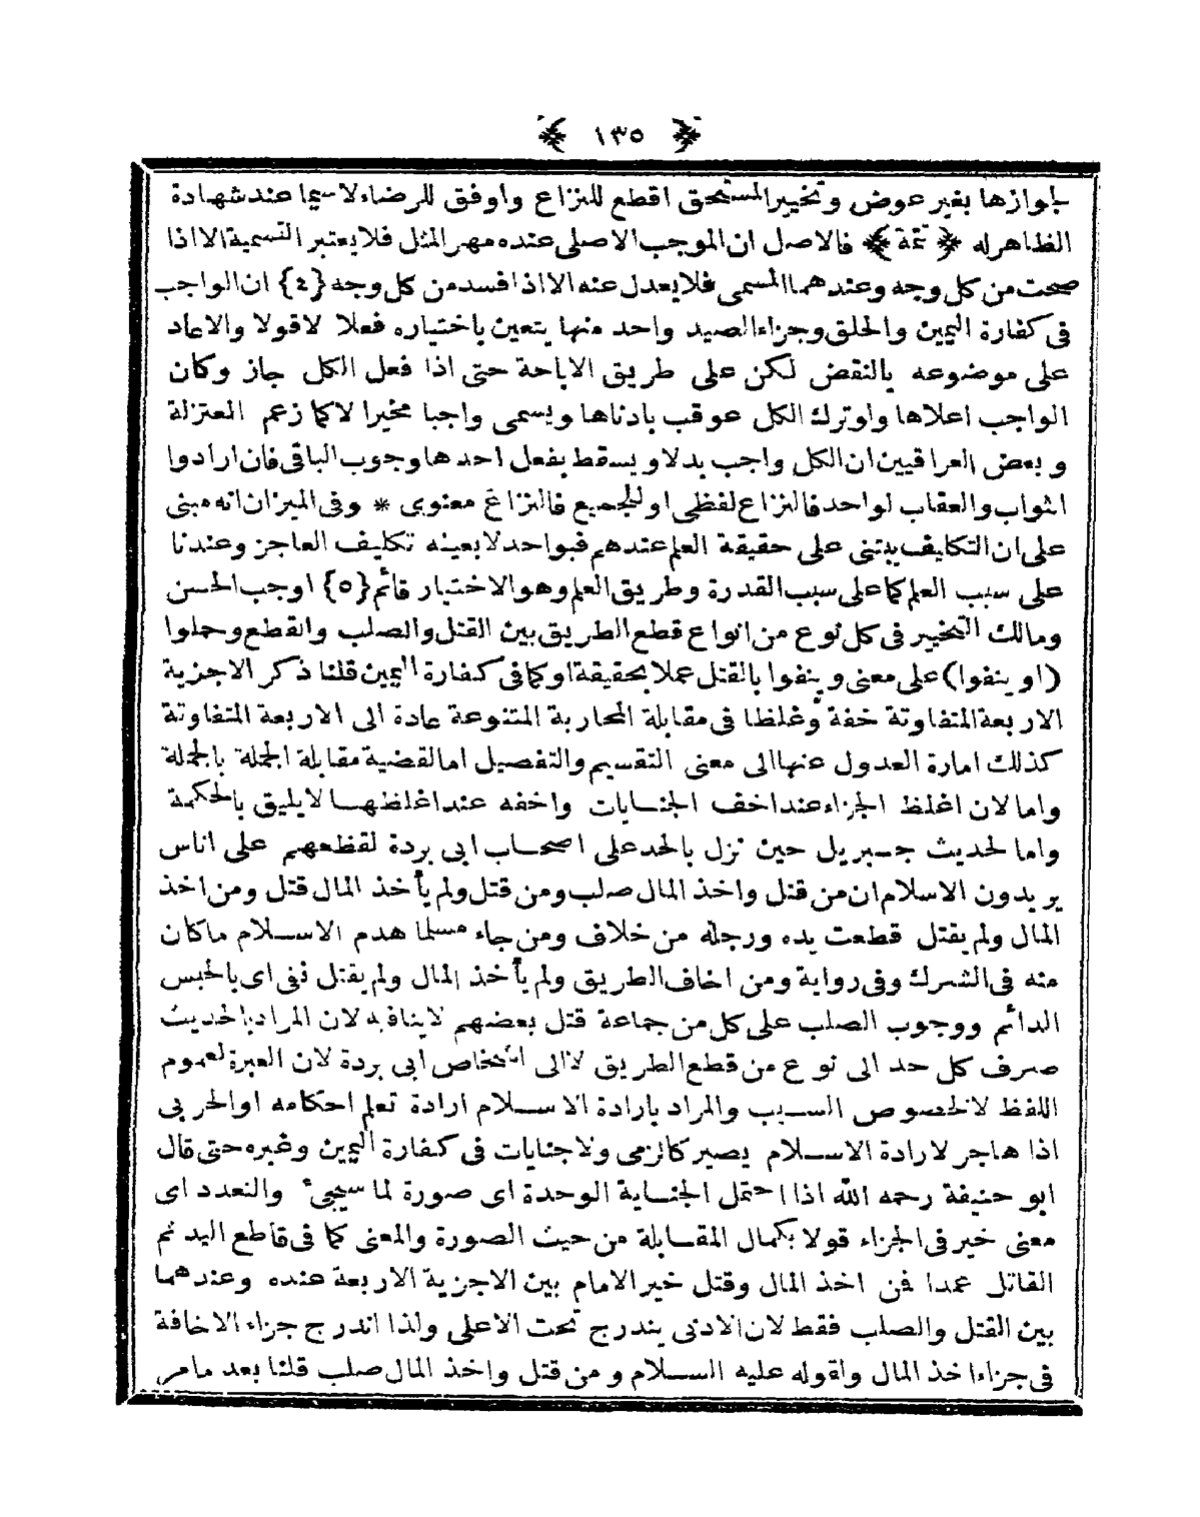 ﴿ ١٣٥ ﴾
لجوازها بغير عوض وتخيير المستحق اقطع للنزاع واوفق للرضاء لاسيما عند شهادة
الظاهر له ﴿ تتمة ﴾ فالاصل ان الموجب الاصلى عنده مهر المثل فلا يعتبر التسمية الا اذا
صحت من كل وجه وعندهما المسمى فلا يعدل عنه الا اذا فسد من كل وجه {٤} ان الواجب
فى كفارة اليمين والحلق وجزاء الصيد واحد منها يتعين باختياره فعلا لا قولا والا عاد
على موضوعه بالنقض لكن على طريق الاباحة حتى اذا فعل الكل جاز وكان
الواجب اعلاها ولو ترك الكل عوقب بادناها ويسمى واجبا مخيرا لا كما زعم المعتزلة
وبعض العراقيين ان الكل واجب بدلا ويسقط بفعل احدها وجوب الباقى فان ارادوا
الثواب والعقاب لواحد فالنزاع لفظى او للجميع فالنزاع معنوى * وفى الميزان انه مبنى
على ان التكليف يبتنى على حقيقة العلم عندهم فبواحد لا بعينه تكليف العاجز وعندنا
على سبب العلم كما على سبب القدرة وطريق العلم وهو الاختيار قائم {٥} اوجب الحسن
ومالك التخيير فى كل نوع من انواع قطع الطريق بين القتل والصلب والقطع وحملوا
(او ينفوا) على معنى وينفوا بالقتل عملا بحقيقة او كما فى كفارة اليمين قلنا ذكر الاجزية
الاربعة المتفاوتة خفة وغلظا فى مقابلة المحاربة المتنوعة عادة الى الاربعة المتفاوتة
كذلك امارة العدول عنها الى معنى التقسيم والتفصيل اما لقضية مقابلة الجملة بالجملة
واما لان اغلظ الجزاء عند اخف الجنايات واخفه عند اغلظها لا يليق بالحكمة
واما لحديث جبريل حين نزل بالحد على اصحاب ابى بردة لقطعهم على اناس
يريدون الاسلام ان من قتل واخذ المال صلب ومن قتل ولم يأخذ المال قتل ومن اخذ
المال ولم يقتل قطعت يده ورجله من خلاف ومن جاء مسلما هدم الاسلام ماكان
منه فى الشرك وفى رواية ومن اخاف الطريق ولم يأخذ المال ولم يقتل نفى اى بالحبس
الدائم ووجوب الصلب على كل من جماعة قتل بعضهم لا ينافيه لان المراد بالحديث
صرف كل حد الى نوع من قطع الطريق لا الى اشخاص ابى بردة لان العبرة لعموم
اللفظ لا لخصوص السبب والمراد بارادة الاسلام ارادة تعلم احكامه او الحربى
اذا هاجر لارادة الاسلام يصير كالذمى ولا جنايات فى كفارة اليمين وغيره حتى قال
ابو حنيفة رحمه الله اذا احتمل الجناية الوحدة اى صورة لما سيجئ والتعدد اى
معنى خير فى الجزاء قولا بكمال المقابلة من حيث الصورة والمعنى كما فى قاطع اليد ثم
القاتل عمدا فمن اخذ المال وقتل خير الامام بين الاجزية الاربعة عنده وعندهما
بين القتل والصلب فقط لان الادنى يندرج تحت الاعلى ولذا اندرج جزاء الاخافة
فى جزاء اخذ المال ولقوله عليه السلام ومن قتل واخذ المال صلب قلنا بعد مامر